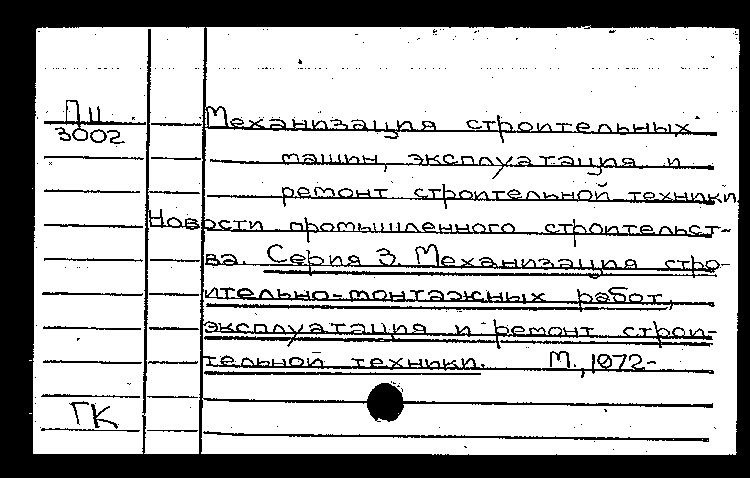 П II
3002
Механизация строительных
машин, эксплуатация и
ремонт строительной техники
Новости промышленного строительст-
ва. Серия 3. Механизация стро-
ительно-монтажных работ,
эксплуатация и ремонт строи-
тельной техники. М., 1972-
ГК